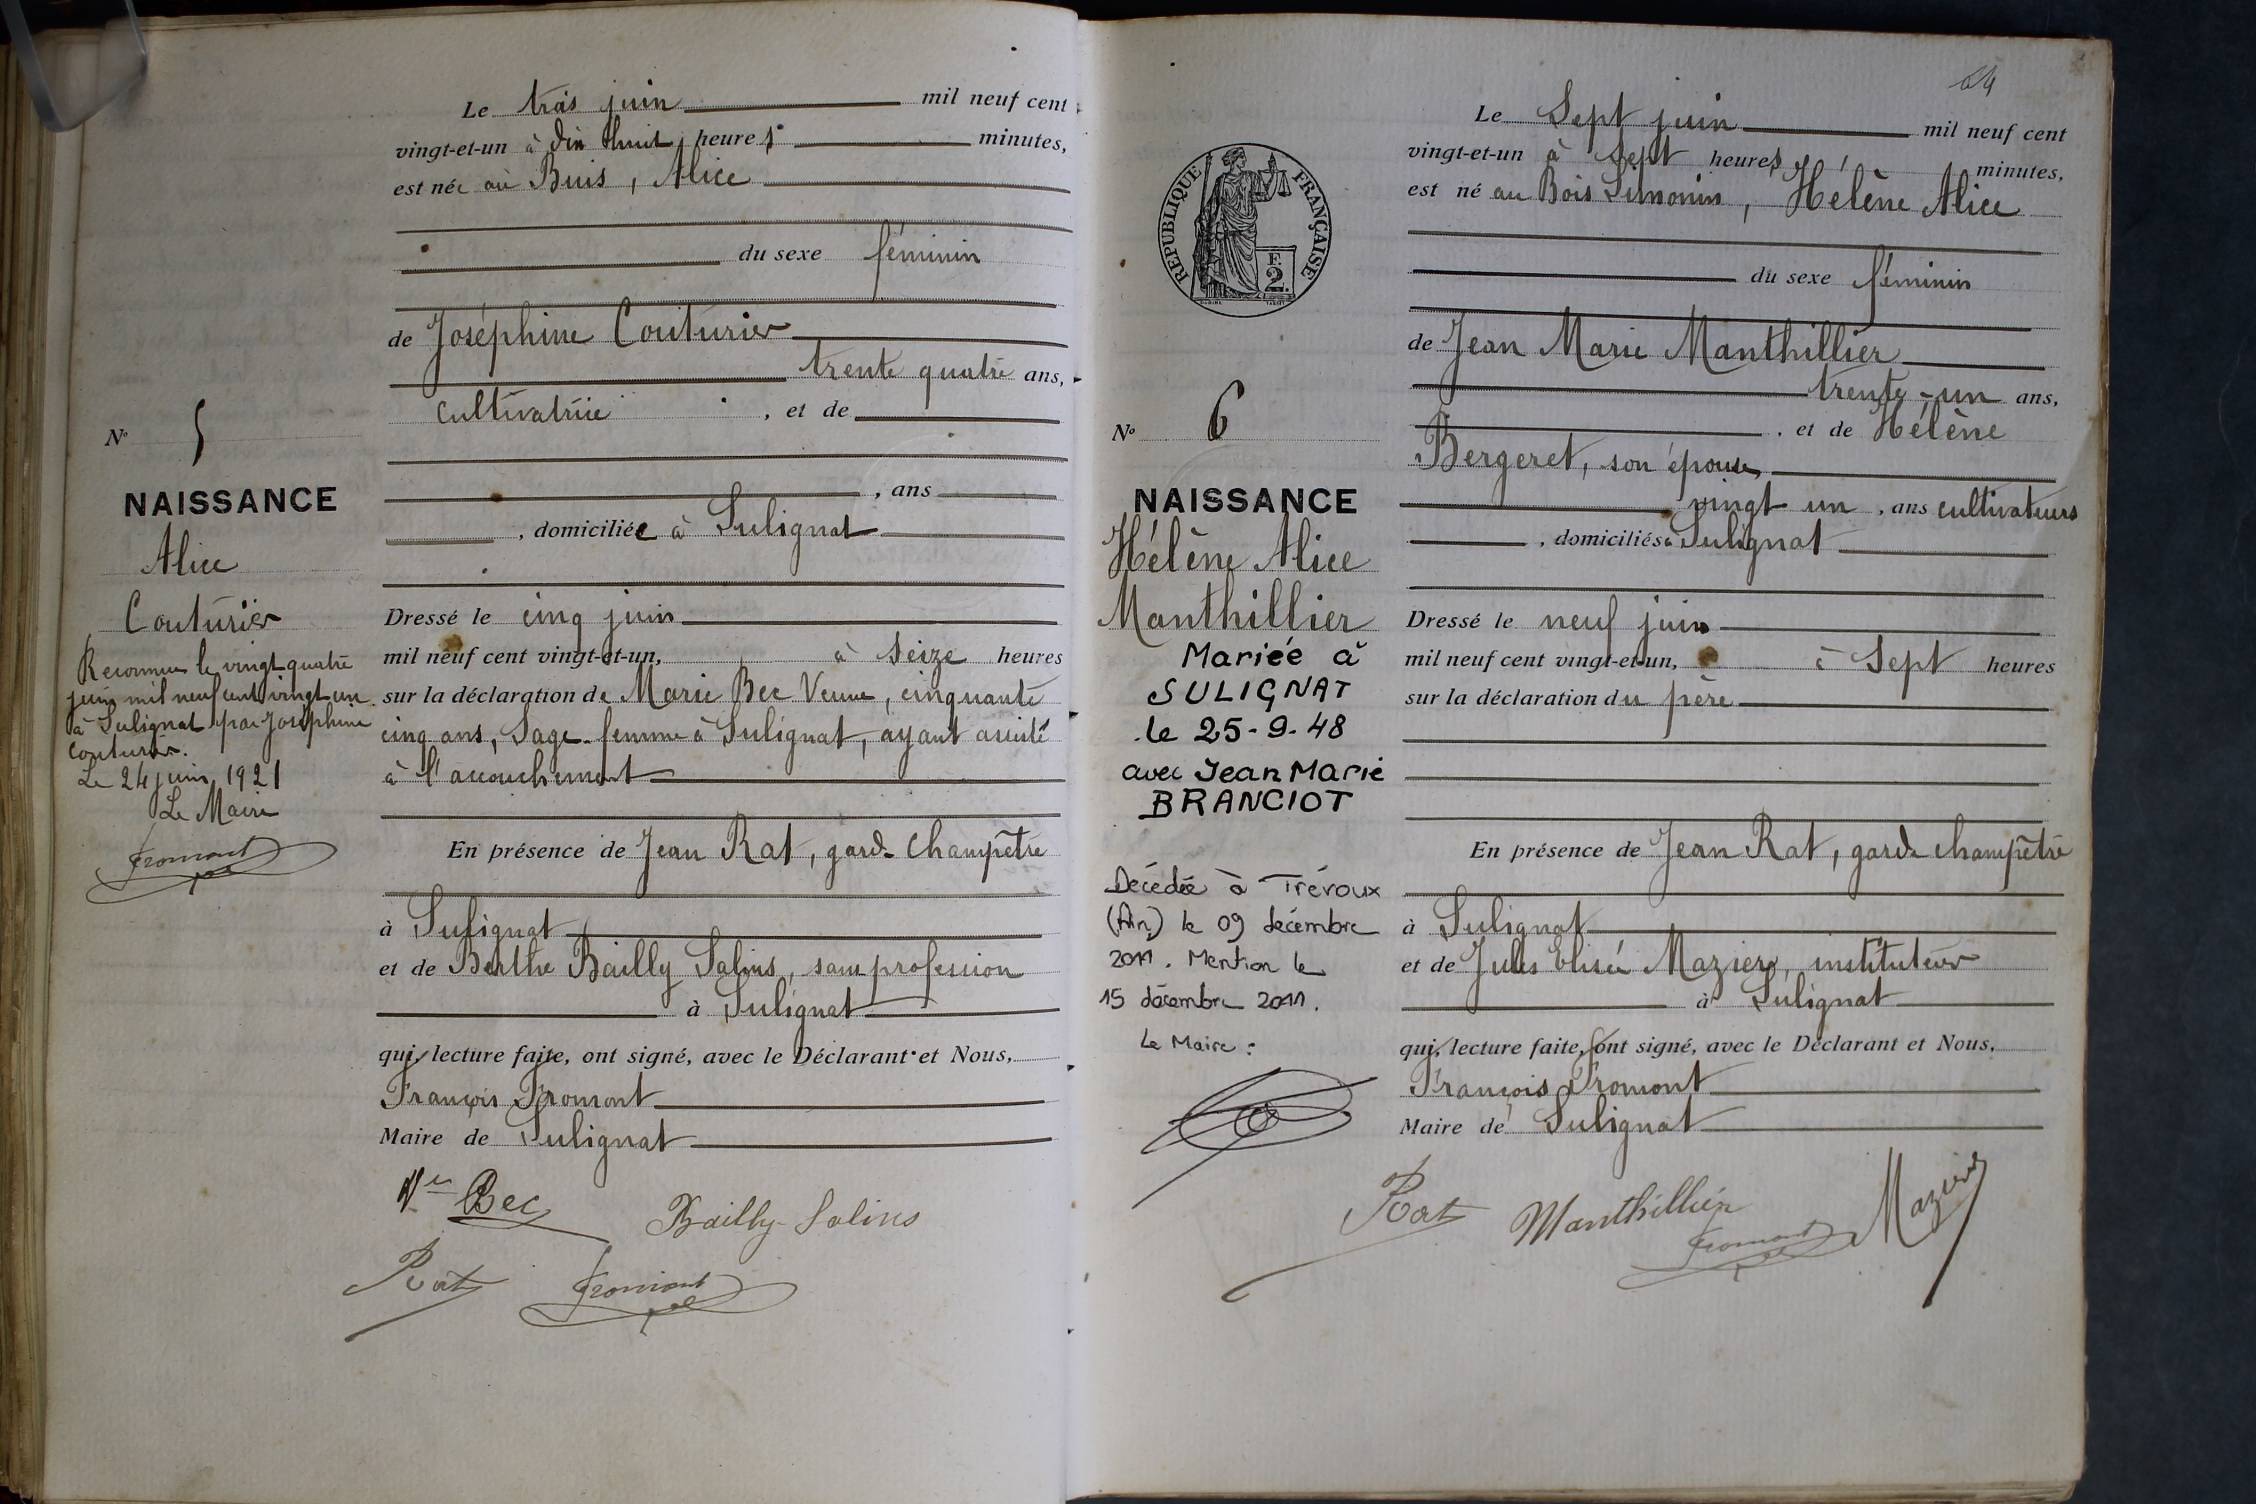 Le trois juin mil neuf cent
vingt-et-un à dix huit heures minutes,
est née au Buis, Alice
du sexe féminin
de Joséphine Couturier
trente quatre ans,
cultivatrice, et de
, ans
, domiciliée à Sulignat
Dressé le cinq juin
mil neuf cent vingt-et-un, à seize heures
sur la déclaration de Marie Bec Veuve, cinquante
cinq ans, Sage-femme à Sulignat, ayant assisté
à l'accouchement
En présence de Jean Rat, garde champêtre
à Sulignat
et de Berthe Bailly Salins, sans profession
à Sulignat
qui, lecture faite, ont signé, avec le Déclarant et Nous,
François Fromont
Maire de Sulignat
Vve Bec
Bailly-Salins
Rat Fromont
No 5
NAISSANCE
Alice
Couturier
Reconnue le vingt quatre
juin mil neuf cent vingt un
à Sulignat par Joséphine
Couturier.
Le 24 juin 1921
Le Maire
Fromont
64
Le Sept juin mil neuf cent
vingt-et-un à sept heures minutes,
est né au Bois Simonin, Hélène Alice
du sexe féminin
de Jean Marie Manthillier
trente-un ans,
, et de Hélène
Bergeret, son épouse,
vingt un, ans cultivateurs
, domiciliés à Sulignat
Dressé le neuf juin
mil neuf cent vingt-et-un, à Sept heures
sur la déclaration du père
En présence de Jean Rat, garde champêtre
à Sulignat
et de Jules Elisée Mazier, instituteur
à Sulignat
qui, lecture faite, ont signé, avec le Déclarant et Nous,
François Fromont
Maire de Sulignat
Rat Manthillier Mazier
Fromont
RÉPUBLIQUE FRANÇAISE
F.
2.
No 6
NAISSANCE
Hélène Alice
Manthillier
Mariée à
SULIGNAT
le 25-9-48
avec Jean Marie
BRANCIOT
Décédée à Trévoux
(Ain) le 09 décembre
2011. Mention le
15 décembre 2011.
Le Maire :